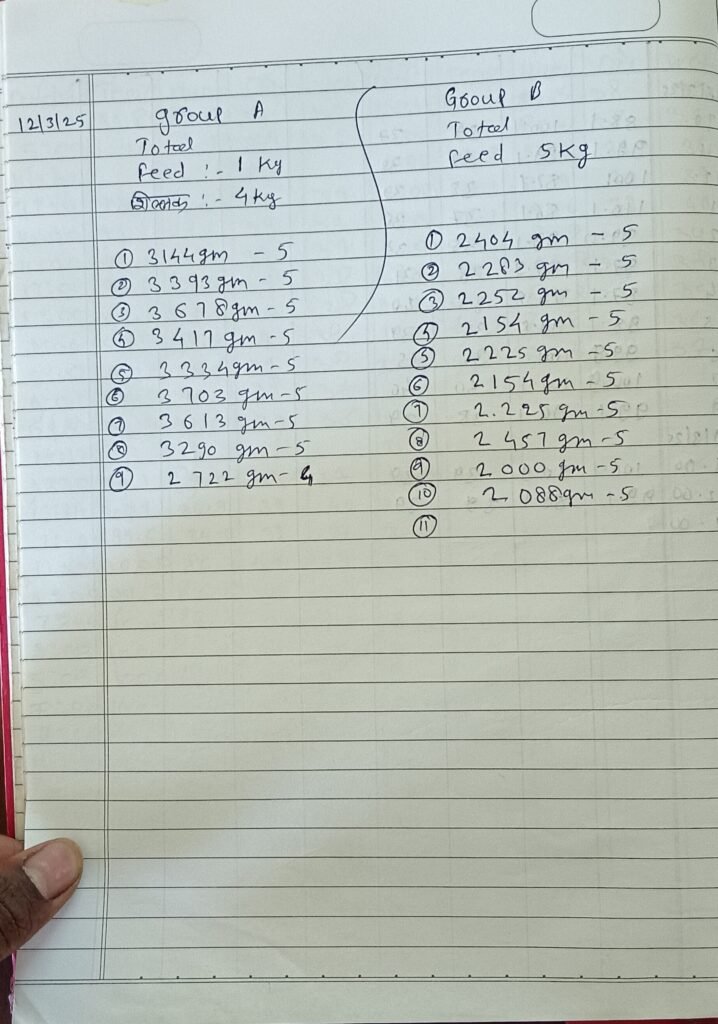 12/3/25
Group A
Total
feed :- 1 Kg
:- 4 Kg
① 3144 gm - 5
② 3393 gm - 5
③ 3678 gm - 5
④ 3417 gm - 5
⑤ 3334 gm - 5
⑥ 3703 gm - 5
⑦ 3613 gm - 5
⑧ 3290 gm - 5
⑨ 2722 gm - 4
Group B
Total
feed 5 Kg
① 2404 gm - 5
② 2283 gm - 5
③ 2252 gm - 5
④ 2154 gm - 5
⑤ 2225 gm - 5
⑥ 2154 gm - 5
⑦ 2.225 gm - 5
⑧ 2457 gm - 5
⑨ 2000 gm - 5
⑩ 2088 gm - 5
⑪